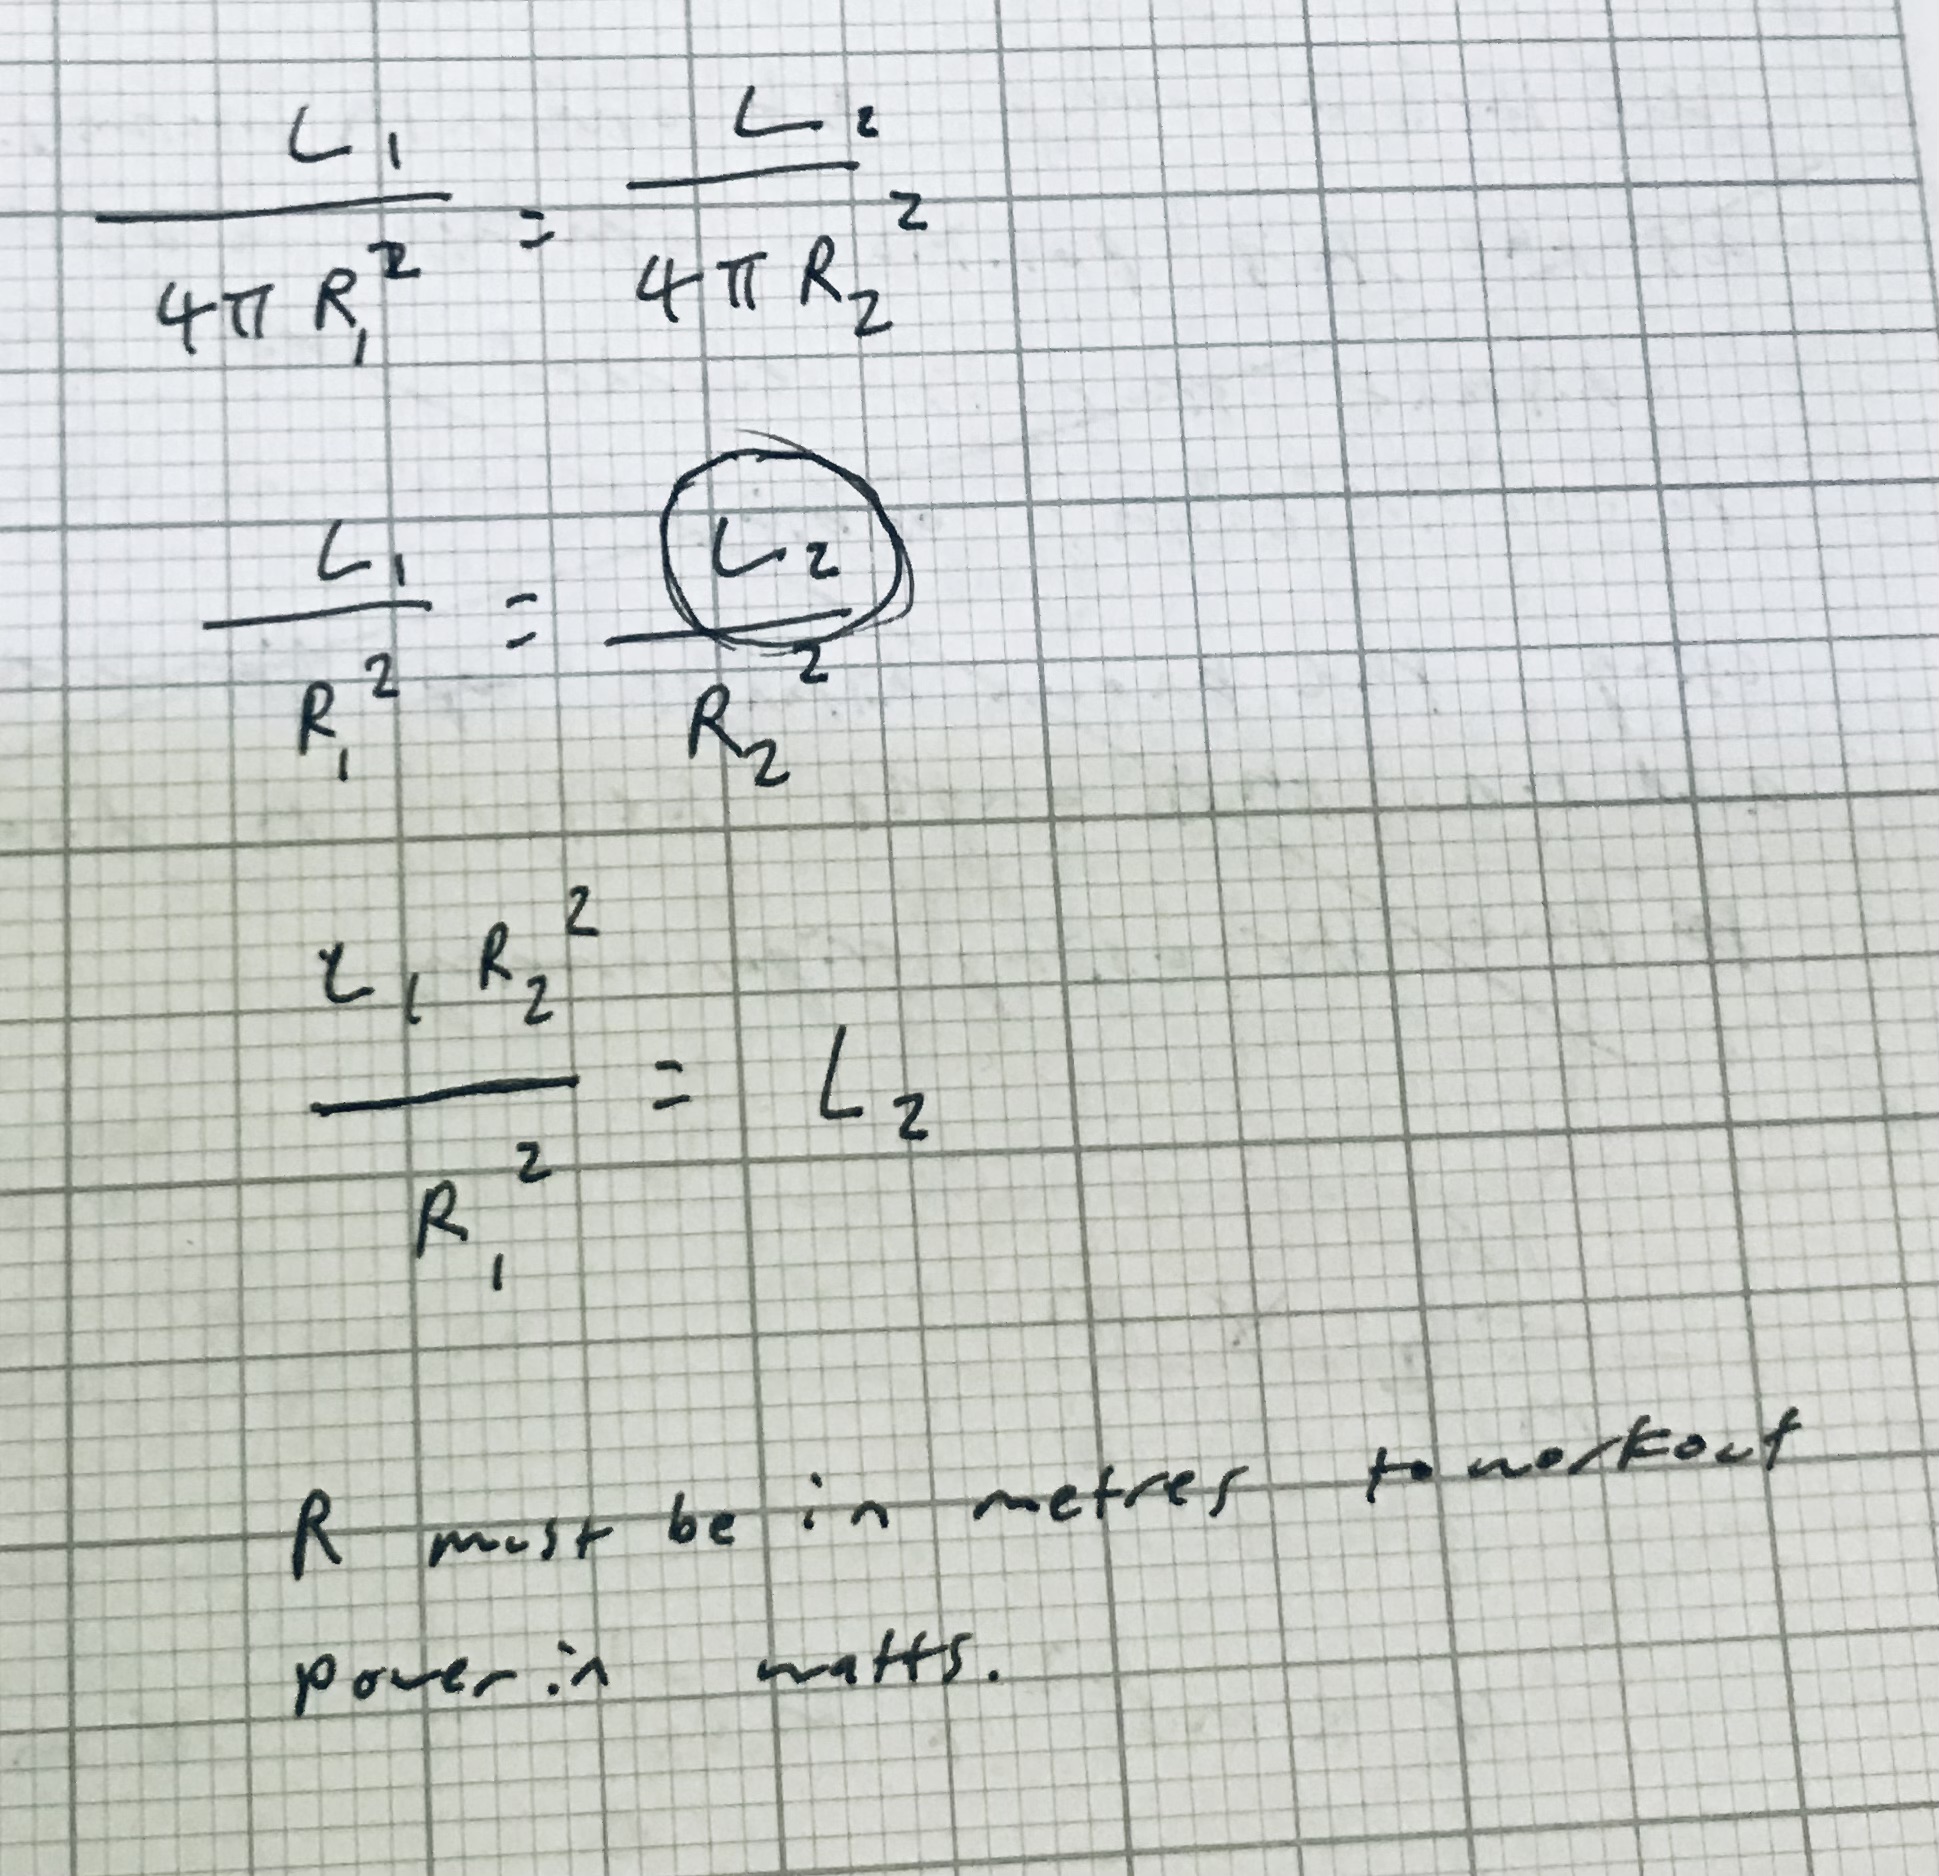 L₁ / 4π R₁² = L₂ / 4π R₂²
L₁ / R₁² = L₂ / R₂²
L₁ R₂² / R₁² = L₂
R must be in metres to workout
power in watts.